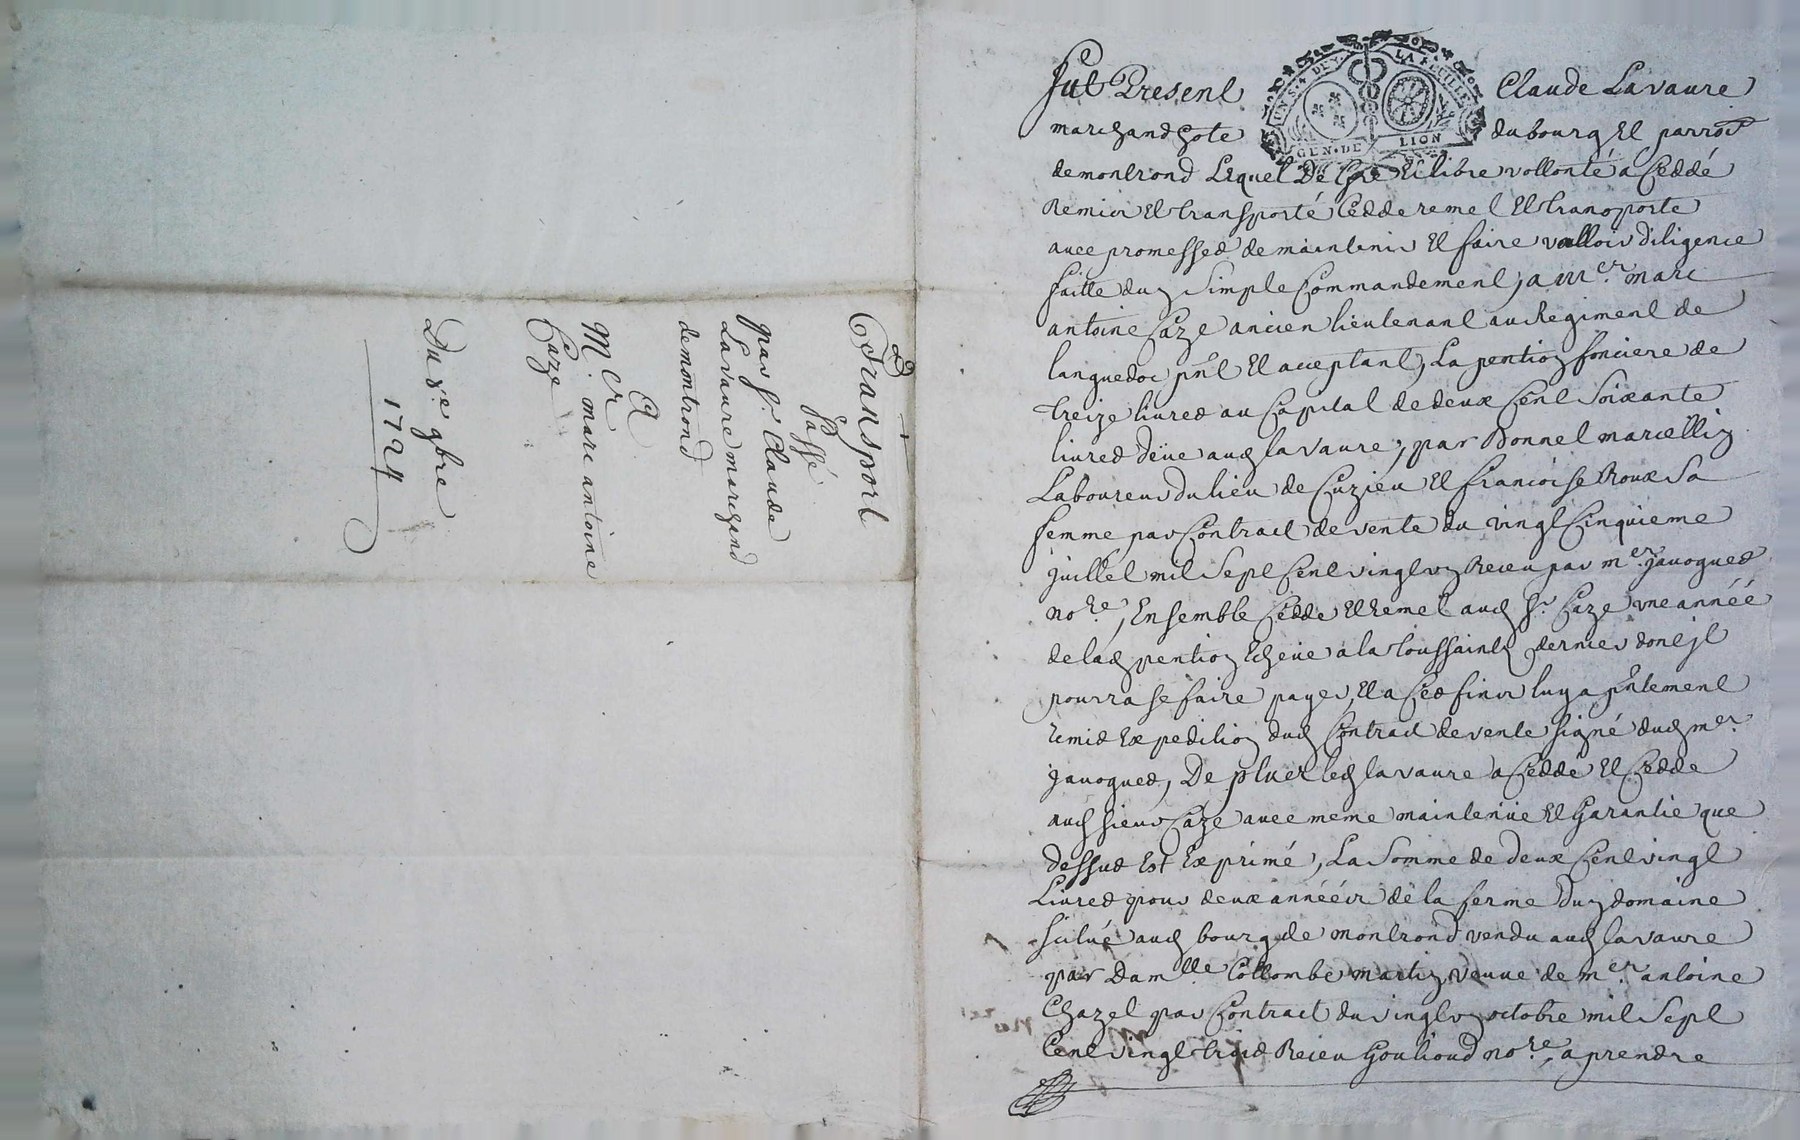 Transport
passé
par Sr. Claude
Lavaure marchand
de montrond
A
Mer. marc antoine
Caze
Du xe. 9bre
1724
fut Present Claude Lavaure
marchand hote du bourg et parroisse
de montrond Lequel De gré et libre vollonté a Ceddé
Remis et transporté Cedde remet et transporte
avec promesses de maintenir et faire valloir diligence
faitte dun Simple Commandement, a Mer. marc
antoine Caze ancien lieutenant au Regiment de
languedoc pnt et acceptant, La pention fonciere de
treize livres au Capital de deux Cent Soixante
livres deüe aud lavaure, par Bonnet marcellin
Laboureur du lieu de Cuzieu et francoise Roux Sa
femme par Contract de vente du vingt Cinquieme
juillet mil Sept Cent vingt un Receu par mer. javogues
nore, Ensemble Cedde et remet aud Sr. Caze une année
de lad pention Echeüe a la toussaintz dernier dont jl
pourra se faire payer, et a Ces fins luy a pntement
remis Expedition dud Contract de vente signé dud mer.
javogues, De plus led lavaure a Ceddé et Cedde
aud sieur Caze avec meme maintenüe et Garantie que
dessus Est Exprimé, La Somme de deux Cent vingt
Livres pour deux annéés de la ferme dun domaine
scitué aud bourg de montrond vendu aud lavaure
par Damlle Collombe martin veuve de mer. antoine
Chazel par Contract du vingt un octobre mil Sept
Cent vingt trois Receu Goulioud nore, a prendre
UN S. 4 DEN. LA FEUILLE
GEN. DE LION